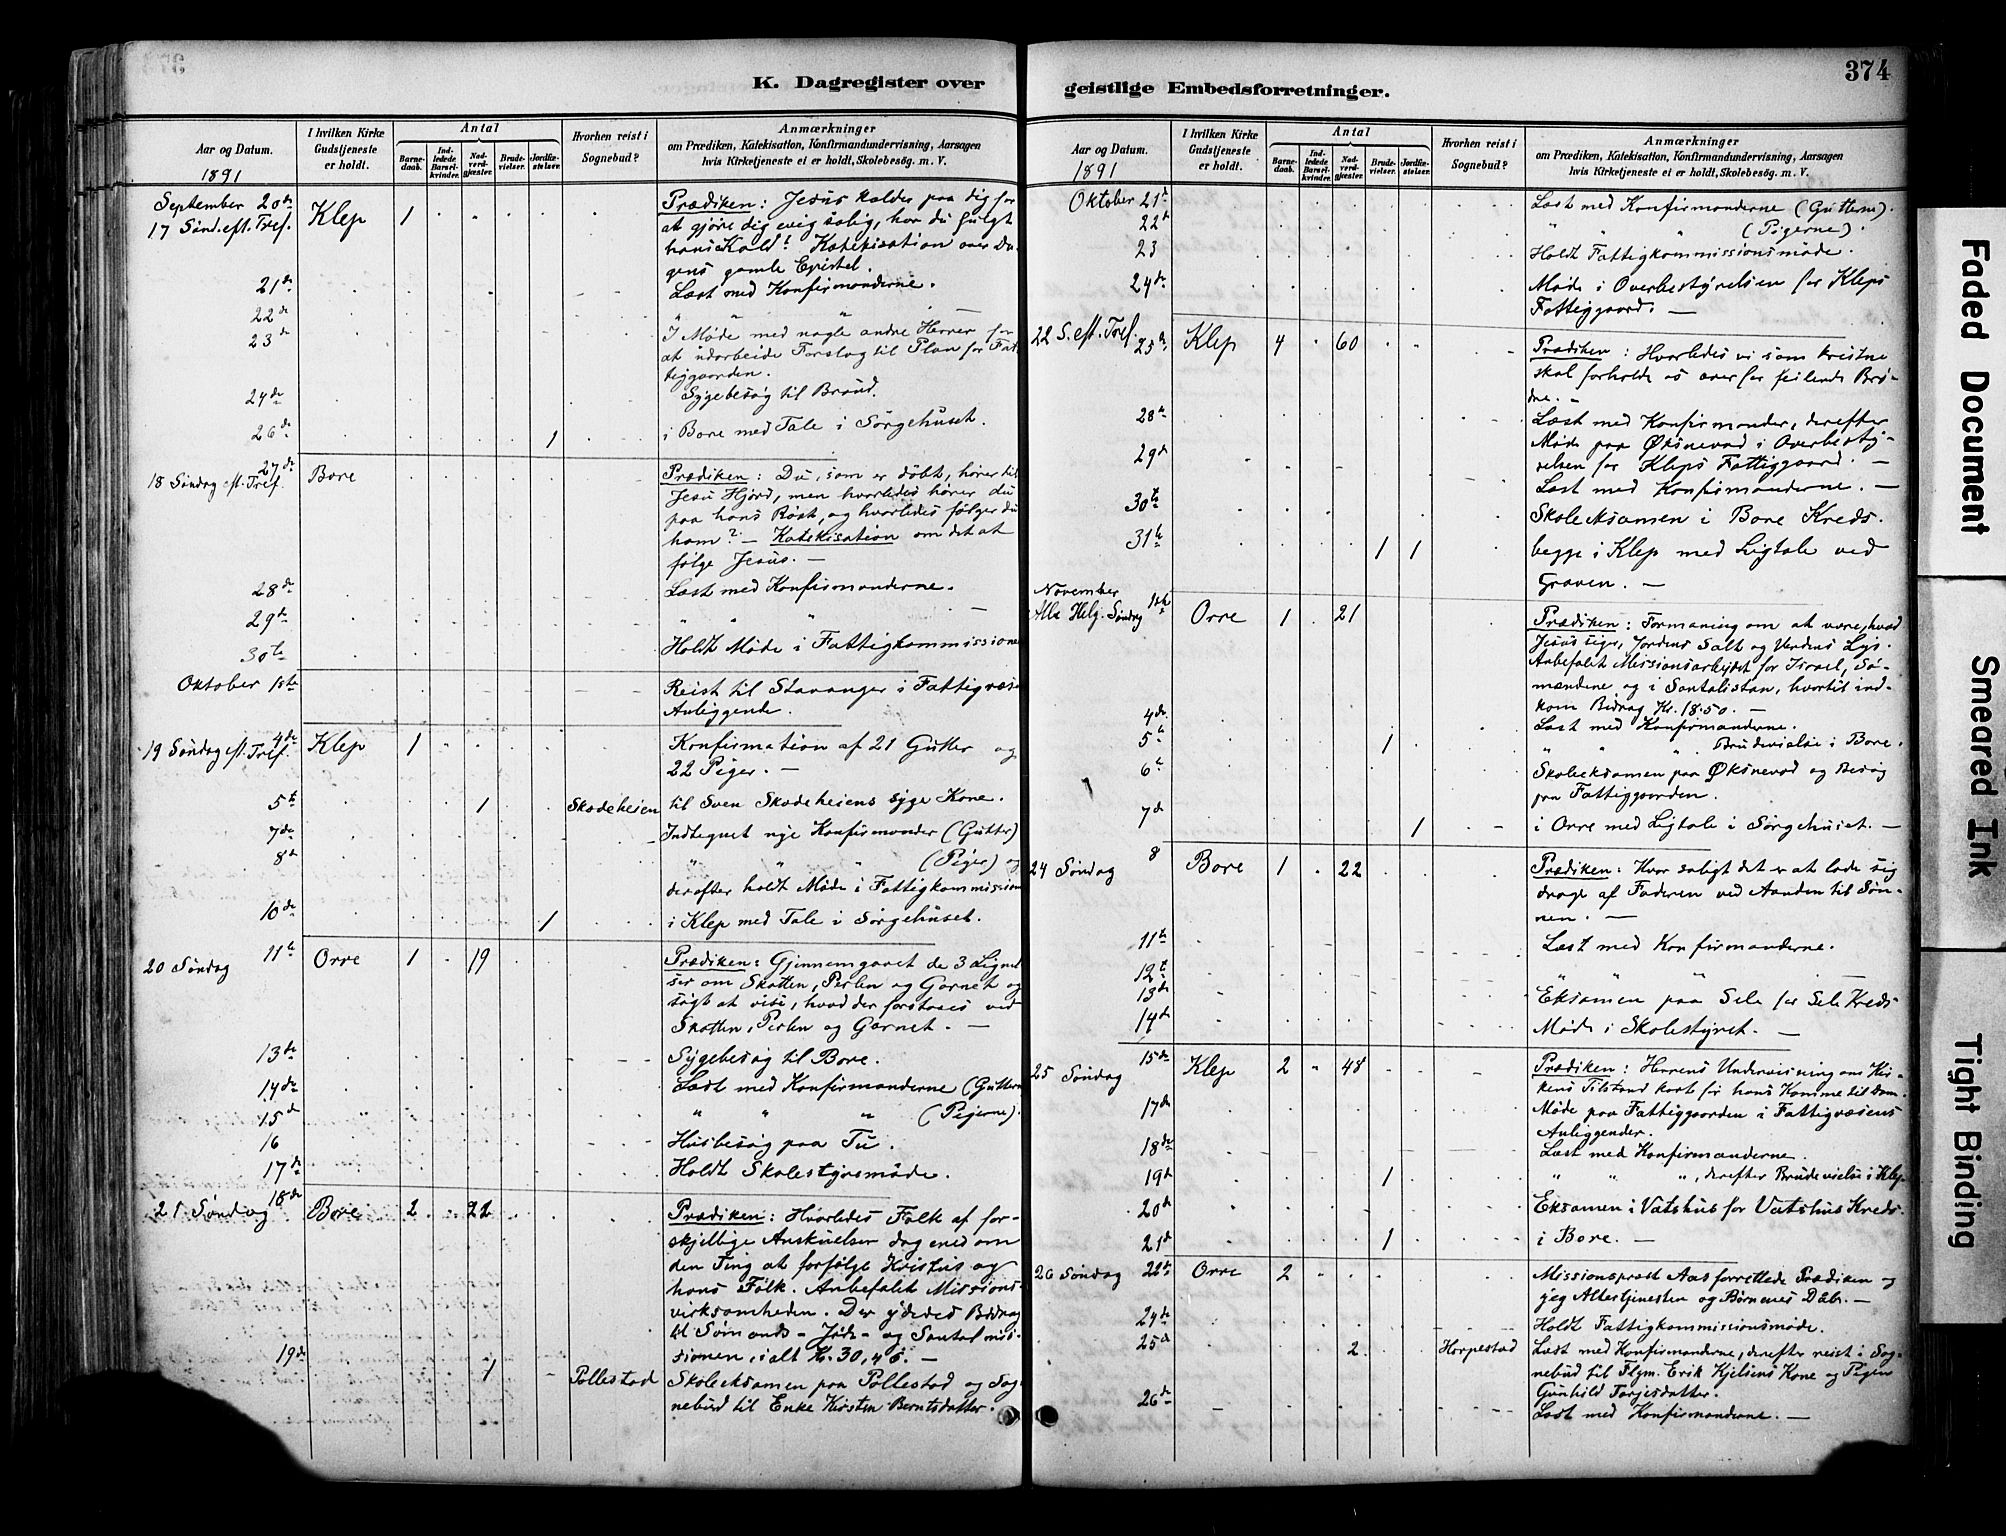 K. Dagregister over
Aar og Datum.
1891
I hvilken Kirke Gudstjeneste er holdt.
Antal
Barnedaab.
Indledede Barselkvinder.
Nadverdgjæster.
Brudevielser.
Jordfæstelser.
Hvorhen reist i Sognebud?
Anmærkninger
om Prædiken, Katekisation, Konfirmandundervisning, Aarsagen
hvis Kirketjeneste ei er holdt, Skolebesøg. m. V.
September 20de
17 Sønd. eft. Tref. Klep 1 Prædiken: Jesus kalder paa dig for
at gjøre dig evig salig, har du fulgt
hans Kald? Katekisation over Da-
gens gamle Epistel.
21de Læst med Konfirmanderne.
22de " " " —
23de I Møde med nogle andre Herrer for
at udarbeide Forslag til Plan for Fat-
tiggaarden.
24de Sygebesøg til Braud.
26de 1 i Bore med Tale i Sørgehuset.
27de
18 Søndag eft. Tref. Bore Prædiken: Du, som er døbt, hører til
Jesu Hjord, men hvorledes hører du
paa hans Røst, og hvorledes følger du
ham? — Katekisation om det at
følge Jesus. —
28de Læst med Konfirmanderne.
29de " " " —
30te Holdt Møde i Fattigkommissionen
Oktober 1ste Reist til Stavanger i Fattigvæse
Anliggende.
4de
19 Søndag eft. Tref. Klep 1 Konfirmation af 21 Gutter og
22 Piger. —
5te 1 Skadeheien til Sven Skadeheiens syge Kone.
7de Indtegnet nye Konfirmander (Gutter)
8de " " " (Piger) og
derefter holdt Møde i Fattigkommission
10de 1 i Klep med Tale i Sørgehuset.
11te
20 Søndag Orre 1 19 Prædiken: Gjennemgaaet de 3 Lignel
ser om Skatten, Perlen og Garnet og
søgt at vise, hvad der forstaaes ved
Skatten, Perlen og Garnet. —
13de Sygebesøg til Bore.
14de Læst med Konfirmanderne (Guttern
15de " " " (Pigerne).
16 Husbesøg paa Tu.
17de Holdt Skolestyrsmøde.
18de
21 Søndag Bore 2 22 Prædiken: Hvorledes Folk af for-
skjellige Anskuelser dog ened om
den Ting at forfølge Kristus og
hans Folk. Anbefalet Missions
virksomheden. Der ydedes Bidrag
til Sømands- Jøde- og Santalmis-
sionen, ialt Kr. 30,46. —
19de 1 Pollestad Skoleeksamen paa Pollestad og Sog
nebud til Enke Kirsten Berntsdatter.
geistlige Embedsforretninger.
374
Aar og Datum.
1891
I hvilken Kirke Gudstjeneste er holdt.
Antal
Barnedaab.
Indledede Barselkvinder.
Nadverdgjæster.
Brudevielser.
Jordfæstelser.
Hvorhen reist i Sognebud?
Anmærkninger
om Prædiken, Katekisation, Konfirmandundervisning, Aarsagen
hvis Kirketjeneste ei er holdt, Skolebesøg. m. V.
Oktober 21de Læst med Konfirmanderne (Gutterne).
22de " " " (Pigerne).
23 Holdt Fattigkommissionsmøde.
24de Møde i Overbestyrelsen for Kleps
Fattiggaard. —
22 S. eft. Tref. 25de Klep 4 60 Prædiken: Hvorledes vi som kristne
skal forholde os overfor feilende Brø-
dre. —
28de Læst med Konfirmander, derefter
Møde paa Øksnevad i Overbesty-
relsen for Kleps Fattiggaard. —
29de Læst med Konfirmanderne. —
30te Skoleeksamen i Bore Kreds.
31te 1 1 begge i Klep med Ligtale ved
Graven. —
November
Alle Helg. Søndag 1ste Orre 1 21 Prædiken: Formaning om at være, hvad
Jesus siger, Jordens Salt og Verdens Lys.
Anbefalet Missionsarbejdet for Israel, Sø-
mændene og i Santalistan, hvortil ind-
kom Bidrag Kr. 18.50. —
4de Læst med Konfirmanderne.
5te 1 " " " Brudevielse i Bore.
6te Skoleeksamen paa Øksnevad og Besøg
paa Fattiggaarden.
7de 1 i Orre med Ligtale i Sørgehuset. —
8
24 Søndag Bore 1 22 Prædiken: Hvor saligt det er at lade sig
drage af Faderen ved Aanden til Søn-
nen. —
11te Læst med Konfirmanderne.
12te " " " —
13de Eksamen paa Sele for Sele Kreds
14de Møde i Skolestyret. —
15de
25 Søndag Klep 2 48 Prædiken: Herrens Undervisning om Kir-
kens Tilstand kort før hans Komme til Dom.
17de Møde paa Fattiggaarden i Fattigvæsens
Anliggender.
18de Læst med Konfirmanderne.
19de 1 " " ", derefter Brudevielse i Klep
20de Eksamen i Vatshus for Vatshus Kreds.
21de 1 i Bore. —
26 Søndag 22de Orre 2 Missionsprest Aas forrettede Prædiken og
jeg Altertjenesten og Børnenes Daab. —
24de Holdt Fattigkommissionsmøde.
25de 2 Horpestad Læst med Konfirmanderne, derefter reist i Sog-
nebud til Flym. Erik Kjelsens Kone og Pigen
Gunhild Torjesdatter.
26de Læst med Konfirmanderne. —
Faded Document
Smeared Ink
Tight Binding